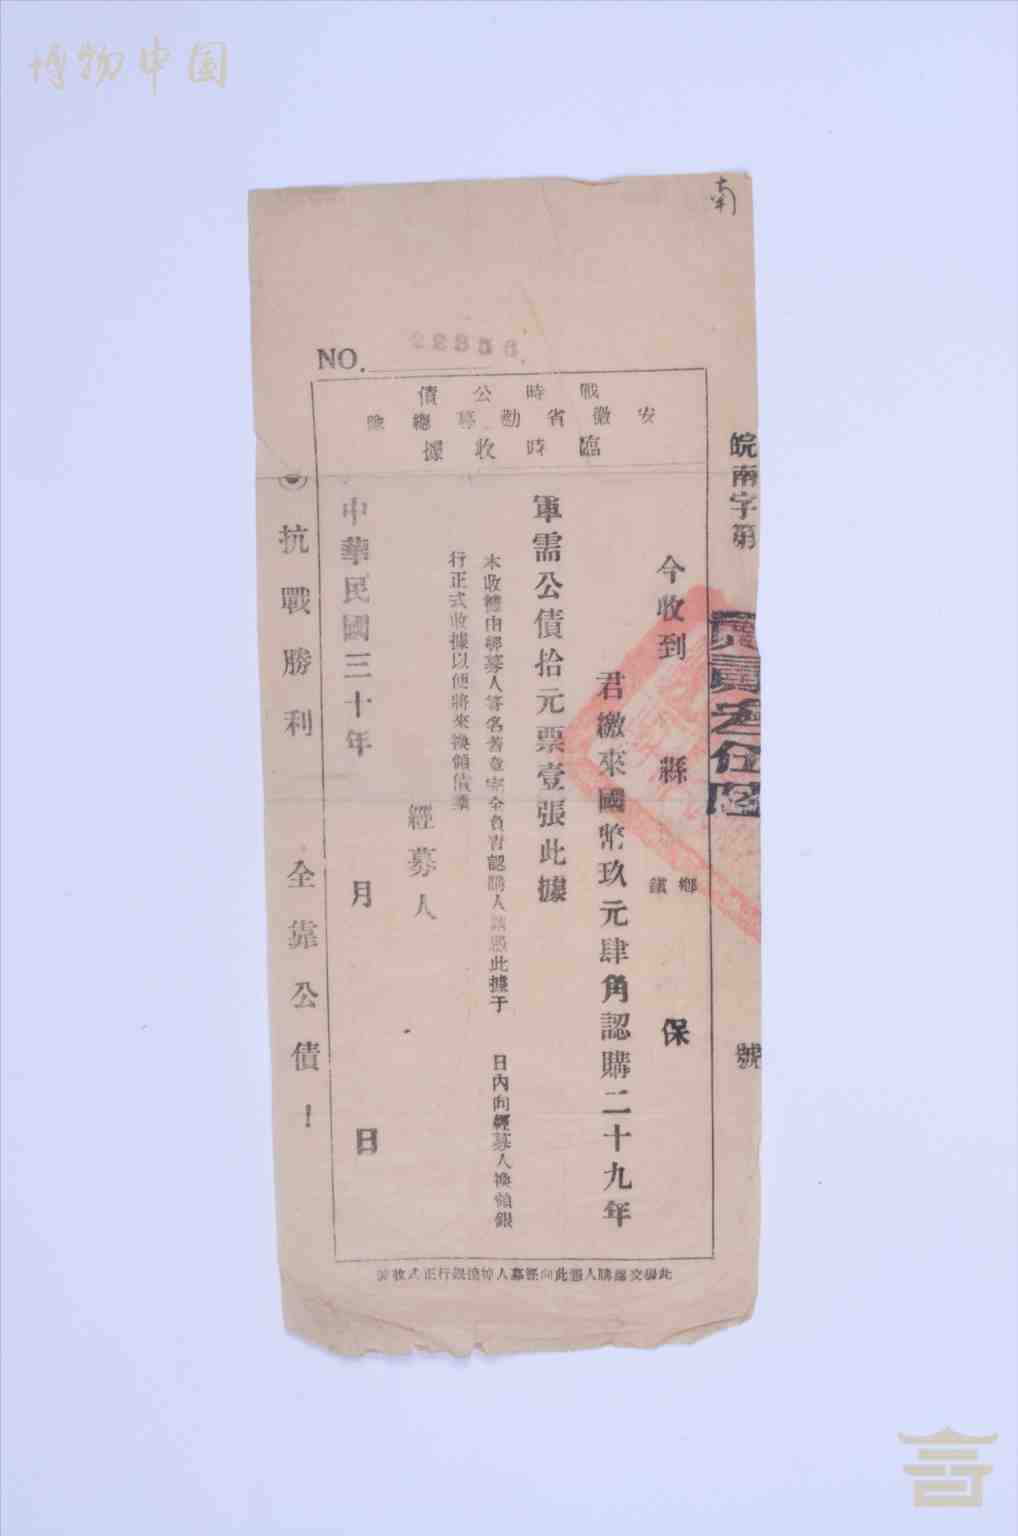 博物中国
南
NO. 22356
戰時公債
安徽省勸募總隊
臨時收據
皖南字第
貳貳叁伍陸
號
今收到 縣 鄉鎮 保
君繳來國幣玖元肆角認購二十九年
軍需公債拾元票壹張此據
本收據由經募人簽名蓋章完全負責認購人請憑此據于 日內向經募人換領銀
行正式收據以便將來換領債票
經募人
中華民國三十年 月 日
抗戰勝利 全靠公債!
此聯交認購人憑此向經募人掉換銀行正式收據